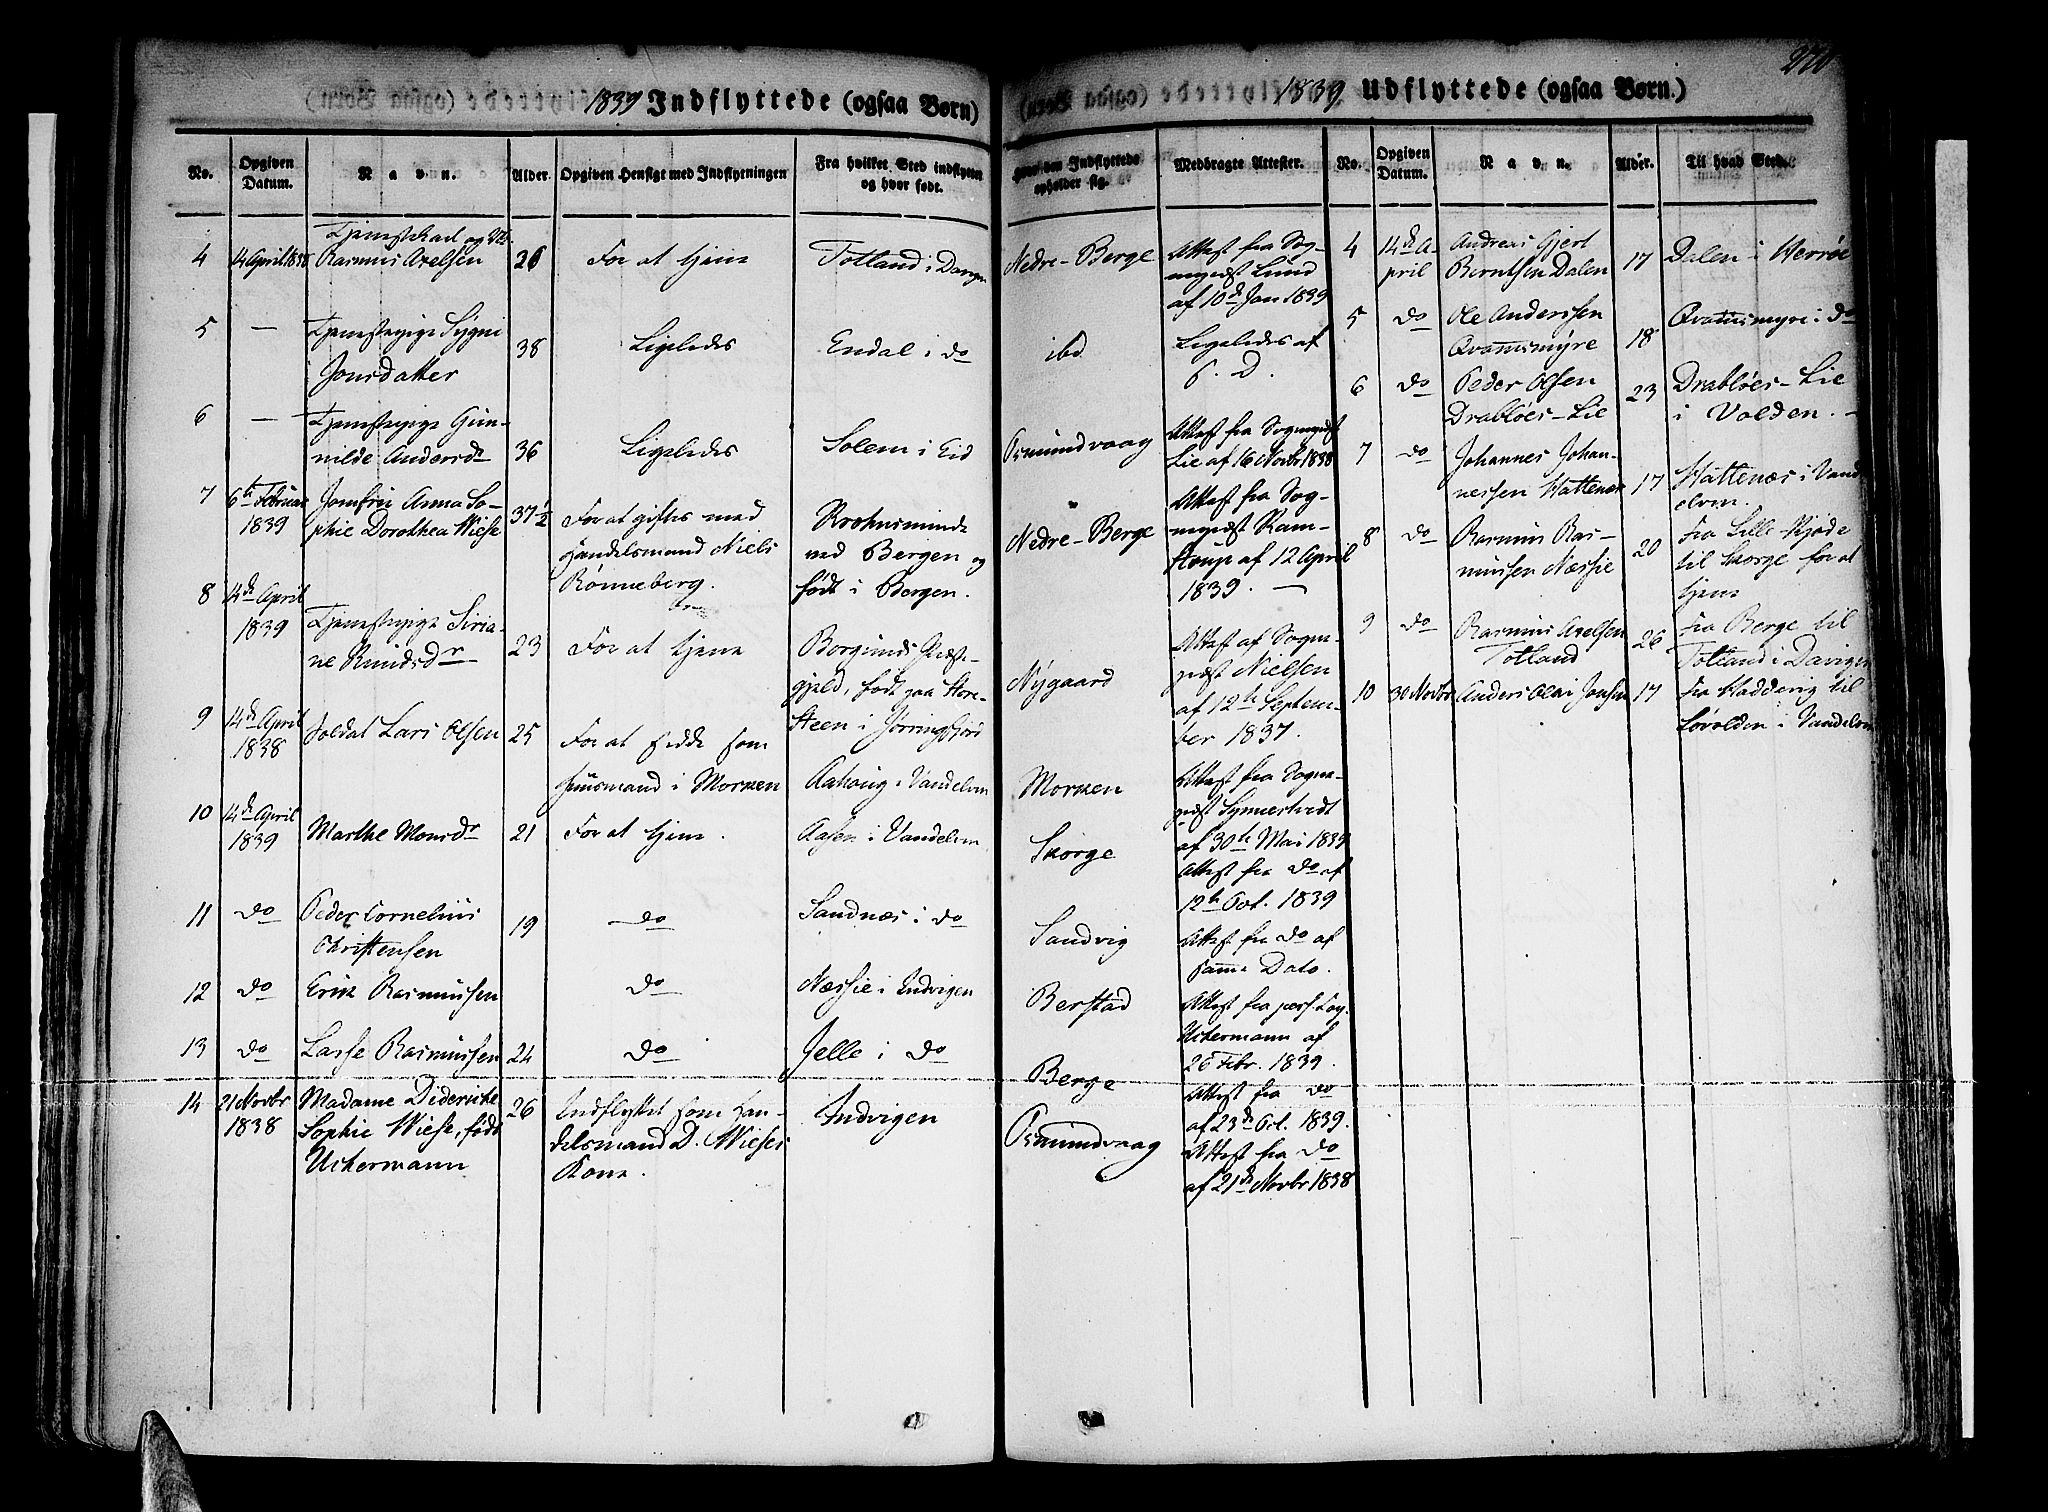 270
1839 Indflyttede (ogsaa Børn)
No.
Opgiven
Datum.
Navn.
Alder.
Opgiven Hensigt med Indflytningen
Fra hvilket Sted indflyttet
og hvor født.
opholder sig.
Medbragte Attester.
4
14 April 1838
Tjenestekarl og
Rasmus Axelsen
26
For at tjene
Totland i
Nedre-Berge
Attest fra Sog-
nepræst Lund
af 10de Jan 1839
5
—
Tjenestepige Sygni
Jonsdatter
38
Ligeledes
Endal i do
ibd
Ligeledes af
S. D.
6
—
Tjenestepige Gun-
nilde Andersdr
36
Ligeledes
Solem i Eid
Osmundvaag
Attest fra Sognepræst
Lie af 16 Novbr 1838
7
6te Februar
1839
Jomfru Anna So-
phie Dorothea Wiese
37½
For at giftes med
Handelsmand Niels
Rønneberg.
Krohnsminde
ved Bergen og
født i Bergen.
Nedre-Berge
Attest fra Sog-
nepræst Ram-
stoup af 12 April
1839. —
8
14de April
1839
Tjenestepige Siria-
ne Knudsdr
23
For at tjene
Borgunds Præste-
gjeld, født paa Store-
Steen i Jørringfjord
Nygaard
Attest af Sogne-
præst Nielsen
af 12te Septem-
ber 1837.
9
14de April
1838
Soldat Lars Olsen
25
For at sidde som
Huusmand i Morken
Aahoug i Vandelven
Morken
Attest fra Sogne-
præst Synnestvedt
af 30te Mai 1839
10
14de April
1839
Marthe Monsdr
21
For at tjene.
Aasen i Vandelven
Skorge
Attest fra do af
12te Oct. 1839
11
do
Peder Cornelius
Christensen
19
do
Sandnæs i do
Sandvig
Attest fra do af
samme Dato.
12
do
Erik Rasmussen
do
Næssie i Indvigen
Berstad
Attest fra pers. Cap.
Uchermann af
26 Febr. 1839.
13
do
Lasse Rasmussen
24
do
Jelle i do
Berge
Attest fra do
af 23de Oct. 1839.
14
21 Novbr
1838
Madame Dideriche
Sophie Wiese, født
Uchermann
26
Indflyttet som Han-
delsmand D. Wieses
Kone.
Indvigen
Osmundvaag
Attest fra do
af 21de Novbr 1838
1839 Udflyttede (ogsaa Børn.)
No.
Opgiven
Datum.
Navn.
Alder.
Til hvad Sted.
4
14de A-
pril
Andreas Gjert
Berntsen Dalen
17
Dalen i Herrøe
5
do
Ole Anderssen
Qvamsmyre
18
Qvamsmyre i do
6
do
Peder Olsen
Drabløes-Lie
23
Drabløes-Lie
i Volden. —
7
do
Johannes Johan-
nessen Hattenæs
17
Hattenæs i Vand
elven.
8
do
Rasmus Ras-
mussen Næssie
20
Fra Lille-Kjøde
til Skorge for at
tjene
9
do
Rasmus Axelsen
Totland
26
Fra Berge til
Totland i Davigen
10
30 Novbr
Anders Olai Jonsen
17
Fra Hadderig til
Løvolden i Vandelven